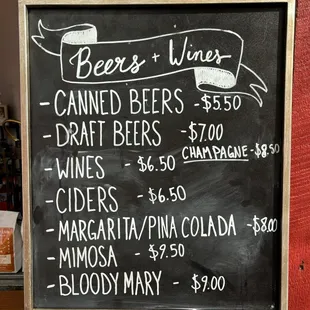 Beers + Wines
- CANNED BEERS - $5.50
- DRAFT BEERS - $7.00
CHAMPAGNE - $8.50
- WINES - $6.50
- CIDERS - $6.50
- MARGARITA/PINA COLADA - $8.00
- MIMOSA - $9.50
- BLOODY MARY - $9.00